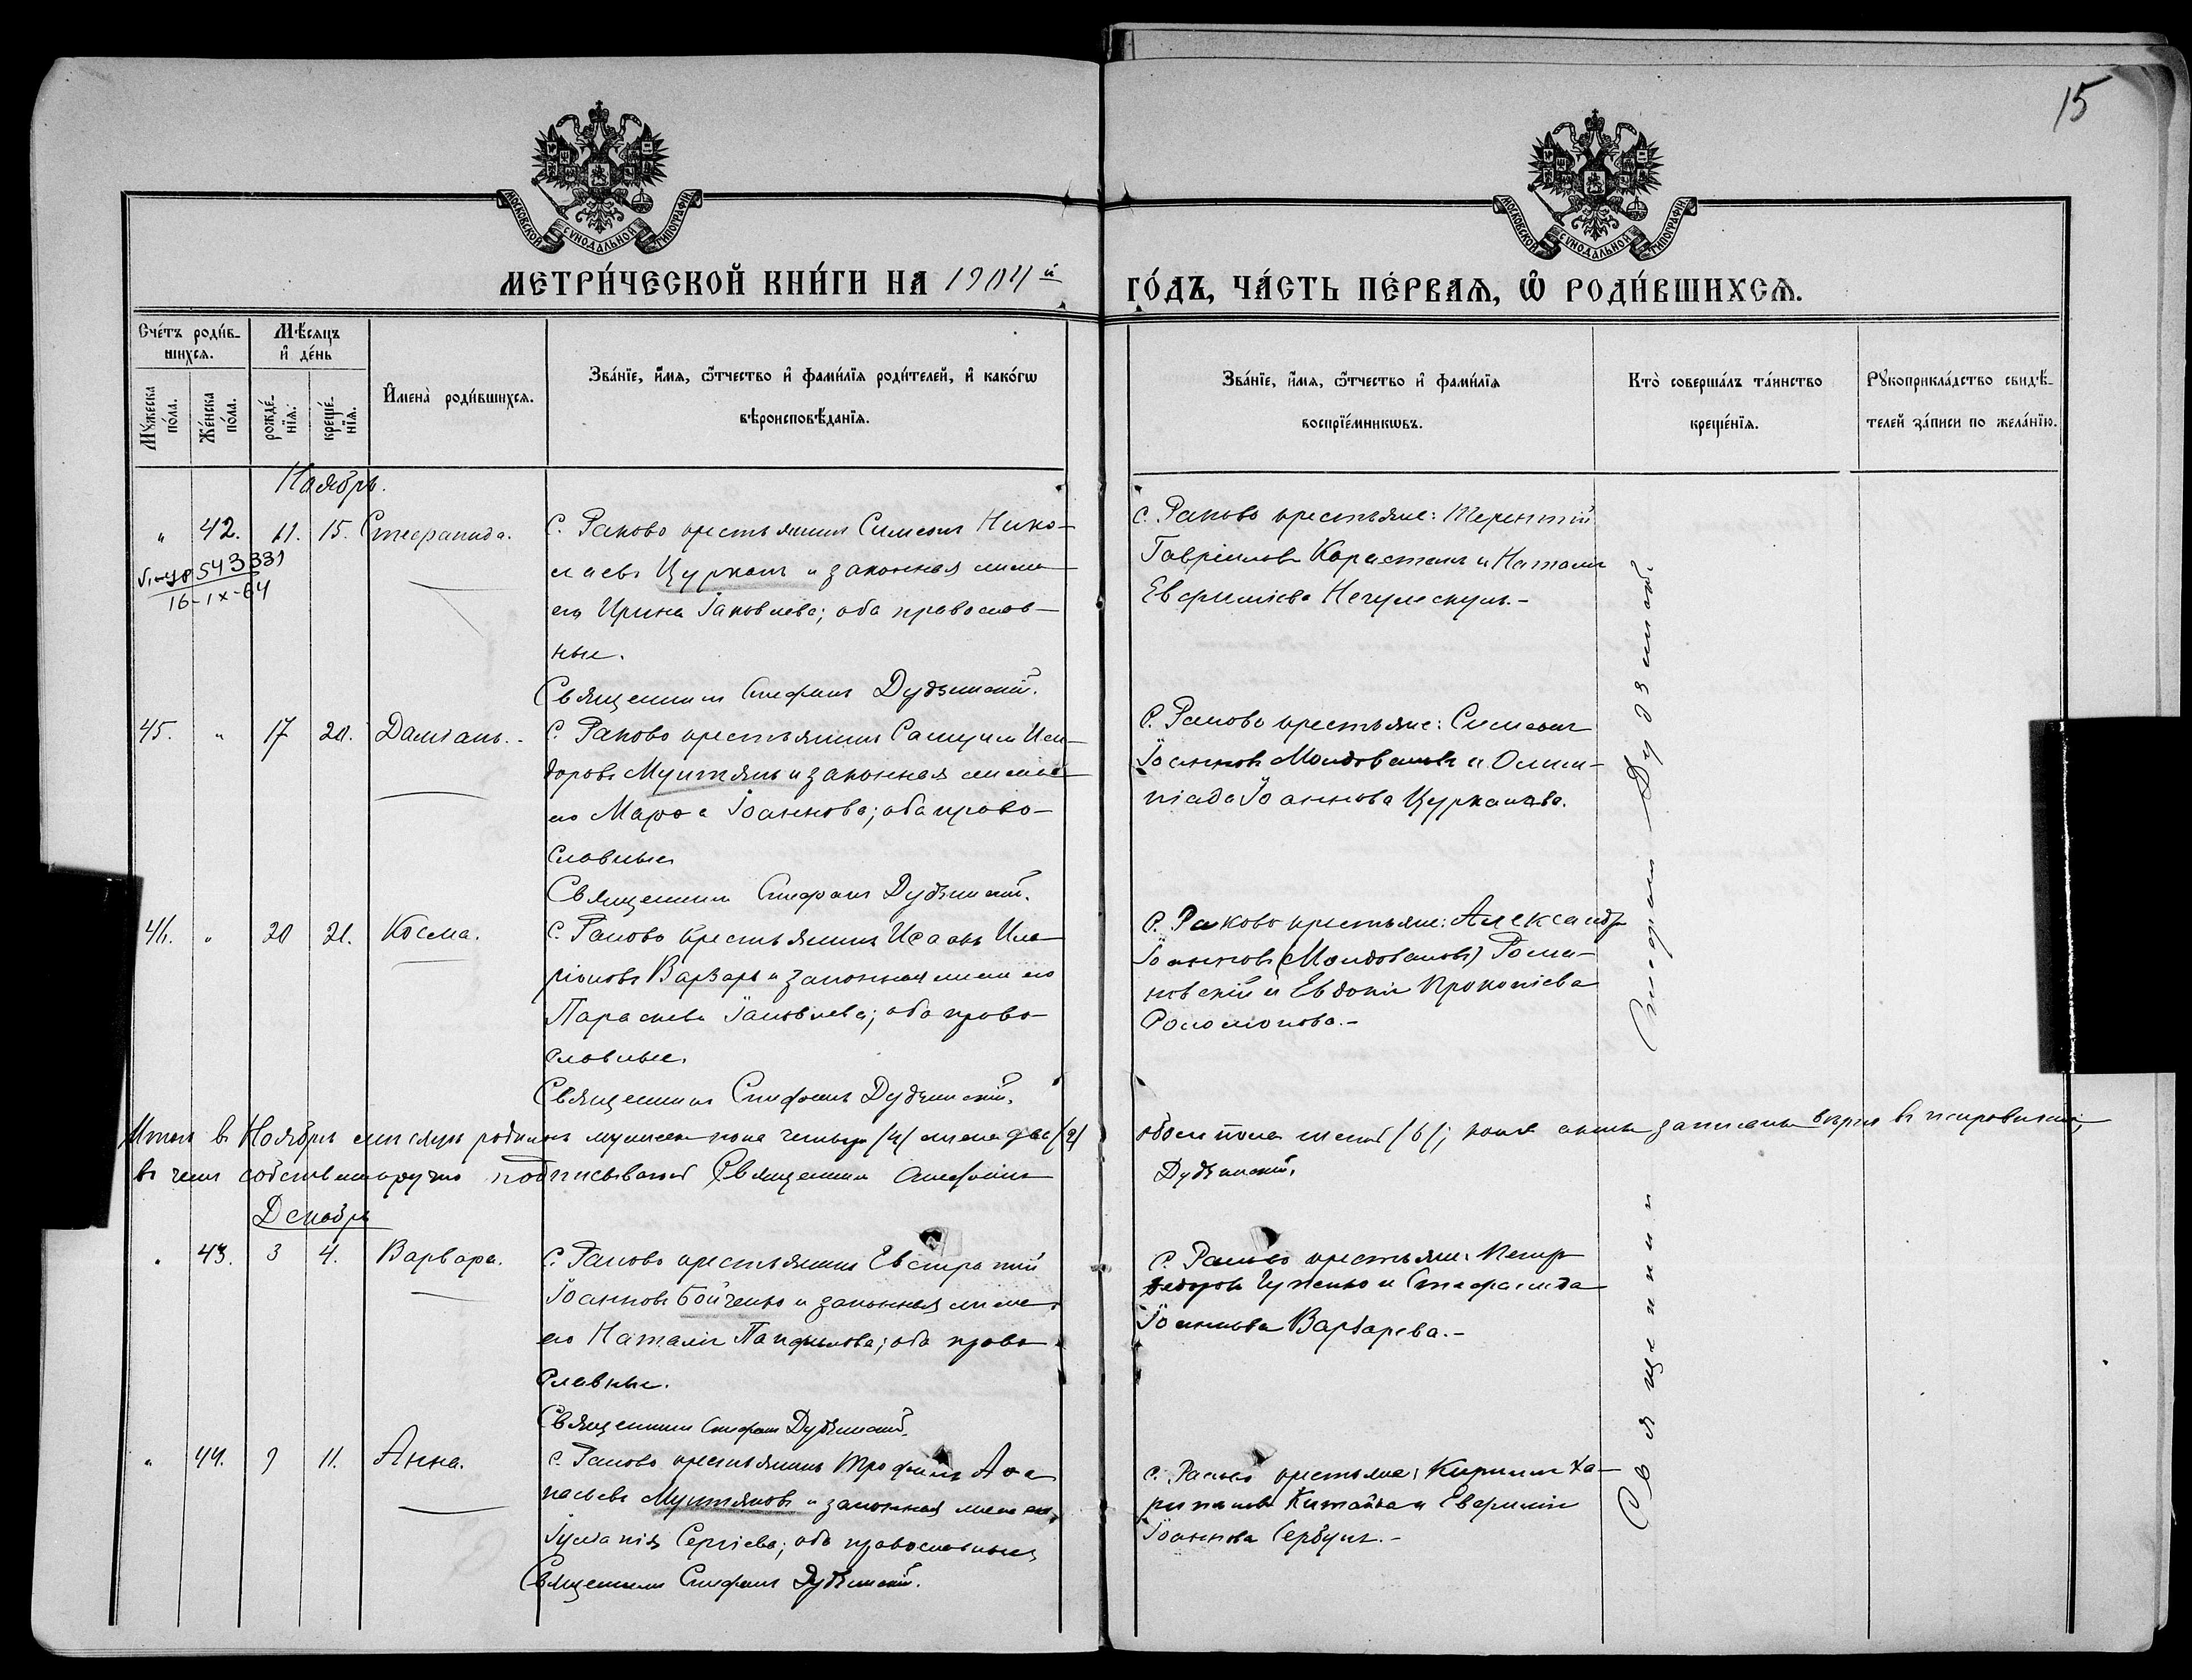 15
МОСКОВСКОЙ СУНОДАЛЬНОЙ ТИПОГРАФІИ
МОСКОВСКОЙ СУНОДАЛЬНОЙ ТИПОГРАФІИ
МЕТРИ́ЧЕСКОЙ КНИ́ГИ НА 1904й
ГО́ДЪ, ЧА́СТЬ ПЕ́РВАѦ, Ѽ РОДИ́ВШИХСѦ.
Сче́тъ роди́в-
шихсѧ.
Мꙋ́жеска по́ла.
Же́нска по́ла.
Мѣ́сяцъ
и҆ де́нь
рожде́-
нїѧ.
креще́-
нїѧ.
И҆мена̀ роди́вшихсѧ.
Зва́нїе, и҆́мѧ, ѻ҆́тчество и҆ фами́лїѧ роди́телей, и҆ како́гѡ
вѣроисповѣ́данїѧ.
Зва́нїе, и҆́мѧ, ѻ҆́тчество и҆ фами́лїѧ
воспрїе́мникѡвъ.
Кто̀ соверша́лъ та́инство
креще́нїѧ.
Рꙋкоприкла́дство свидѣ́-
телей за́писи по жела́нїю.
Ноябрь.
" 42. 11. 15. Стефанида.
543331
16-IX-64
С. Раково крестьянинъ Симеонъ Нико-
лаевъ Цурканъ и законная жена
его Ирина Іаковлева; оба православ-
ные.
Священникъ Стефанъ Дудзинскій.
С. Раково крестьяне: Терентій
Гавріиловъ Карастанъ и Наталія
Евфиміева Негулескулъ.-
45. " 17 20. Даміанъ.
С. Раково крестьянинъ Самуилъ Иси-
доровъ Мунтянъ и законная жена
его Марѳа Іоаннова; оба право-
славные
Священникъ Стефанъ Дудзинскій.
С. Раково крестьяне: Симеонъ
Іоанновъ Молдовановъ и Олим-
піада Іоаннова Цурканова.
46. " 20 21. Косма.
С. Раково крестьянинъ Исаакъ Ила-
ріоновъ Варзарь и законная жена его
Параскева Іаковлева; оба право-
славные.
Священникъ Стефанъ Дудзинскій.
С. Раково крестьяне: Александръ
Іоанновъ (Молдовановъ) Рома-
новскій и Евдокія Прокопіева
Соломонова.-
Итого въ Ноябрѣ мѣсяцѣ родилось мужеска пола четыре /4/ женска два /2/
обоего пола шесть /6/; записаны вѣрно въ
въ чемъ собственноручно подписываюсь Священникъ Стефанъ
Дудзинскій.
Декабрь
" 43. 3 4. Варвара.
С. Раково крестьянинъ Евстратій
Іоанновъ Бойченко и законная жена
его Наталія Панфилова; оба право-
славные.
Священникъ Стефанъ Дудзинскій.
С. Раково крестьяне: Петръ
Ѳедоровъ и Стефанида
Іоаннова Варзарева.-
" 44. 9 11. Анна.
С. Раково крестьянинъ Трофимъ Аѳа-
насьевъ Мунтяновъ и законная жена его,
Іуліанія Сергіева; оба православные,
Священникъ Стефанъ Дудзинскій.
С. Раково крестьяне: Кириллъ Ха-
ритоновъ Китайка и Евфимія
Іоаннова Сербулъ.-
Священникъ Стефанъ Дудзинскій